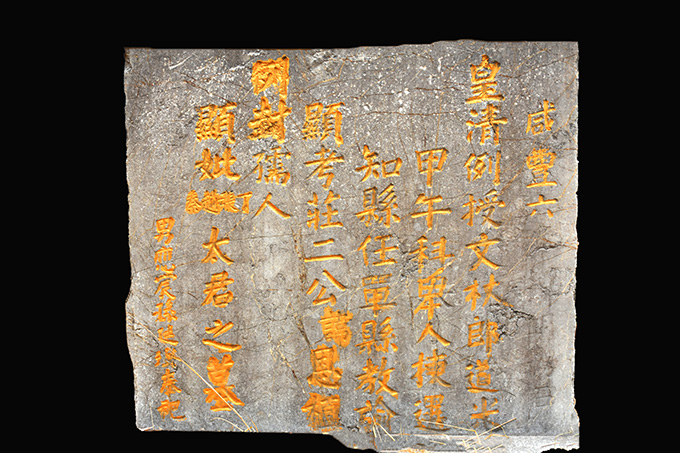 咸豐六
皇清例授文林郎道光
甲午科舉人揀選
知縣任單縣教諭
顯考莊二公諱恩植
例封孺人
顯妣丁魏趙秦太君之墓
男 宸孫廷 奉祀